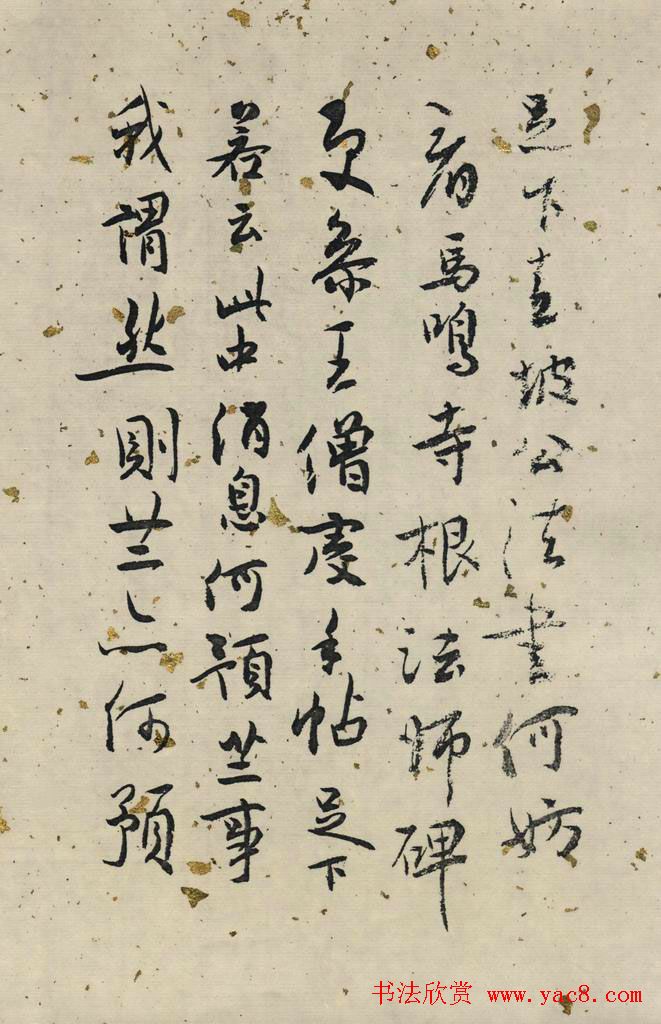 足下喜坡公法書何妨
看馬鳴寺根法師碑
更參王僧虔手帖足下
若云此中消息何預世事
我謂然則世亦何預
书法欣赏 www.yac8.com